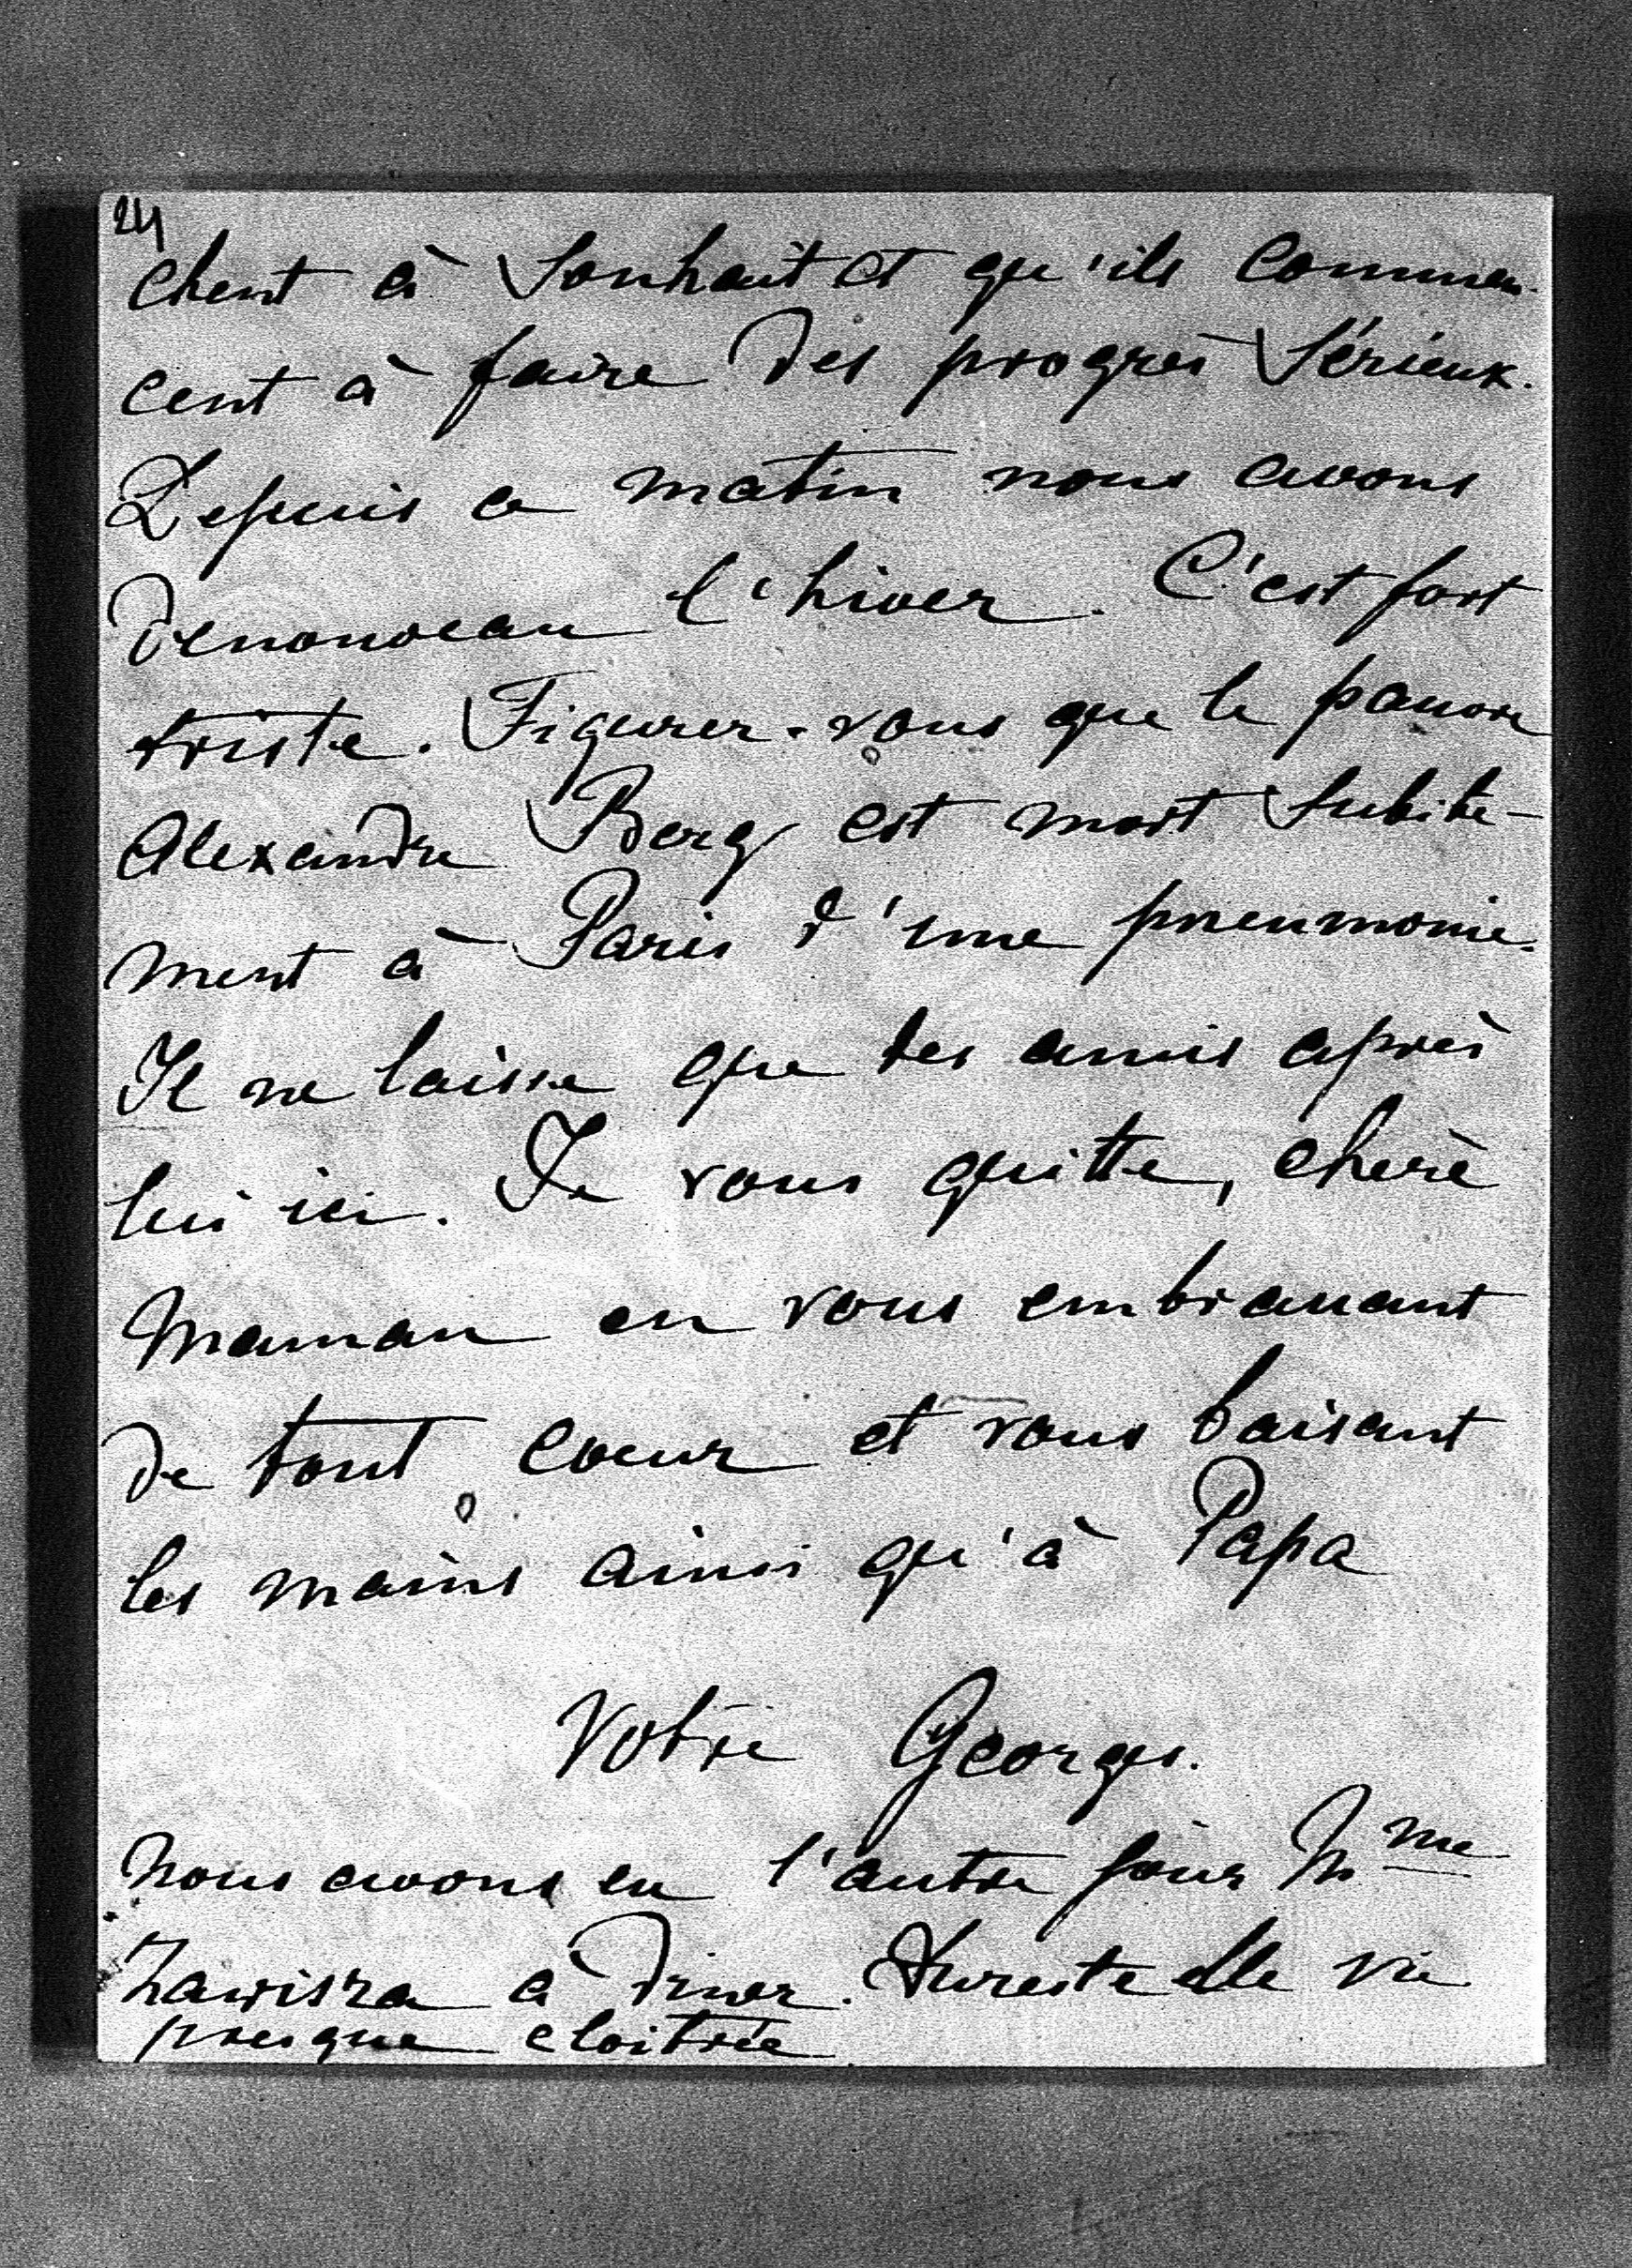 24
chent à souhait et qu'ils commen-
cent à faire des progrès sérieux.
Depuis ce matin nous avons
denouveau l'hiver. C'est fort
triste. Figurez-vous que le pauvre
Alexandre Berg est mort subite-
ment à Paris d'une pneumonie.
Il ne laisse que des amis après
lui ici. Je vous quitte, chère
Maman en vous embrassant
de tout coeur et vous baisant
les mains ainsi qu'à Papa
Votre Georges.
Nous avons eu l'autre jour Mme
Zawisza à diner. Dureste elle vie
presque cloitrée